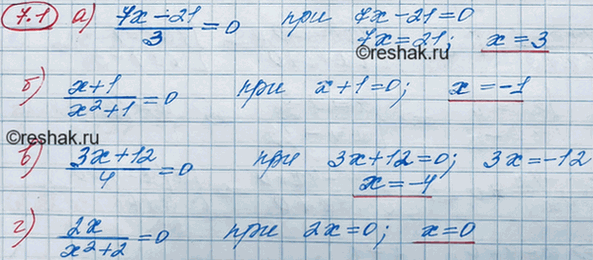 7.1 а) (7x-21)/3 = 0 при 7x-21=0
7x=21; x=3
©reshak.ru
б) (x+1)/(x²+1) = 0 при x+1=0; x=-1
©reshak.ru
в) (3x+12)/4 = 0 при 3x+12=0; 3x=-12
x=-4
г) 2x/(x²+2) = 0 при 2x=0; x=0